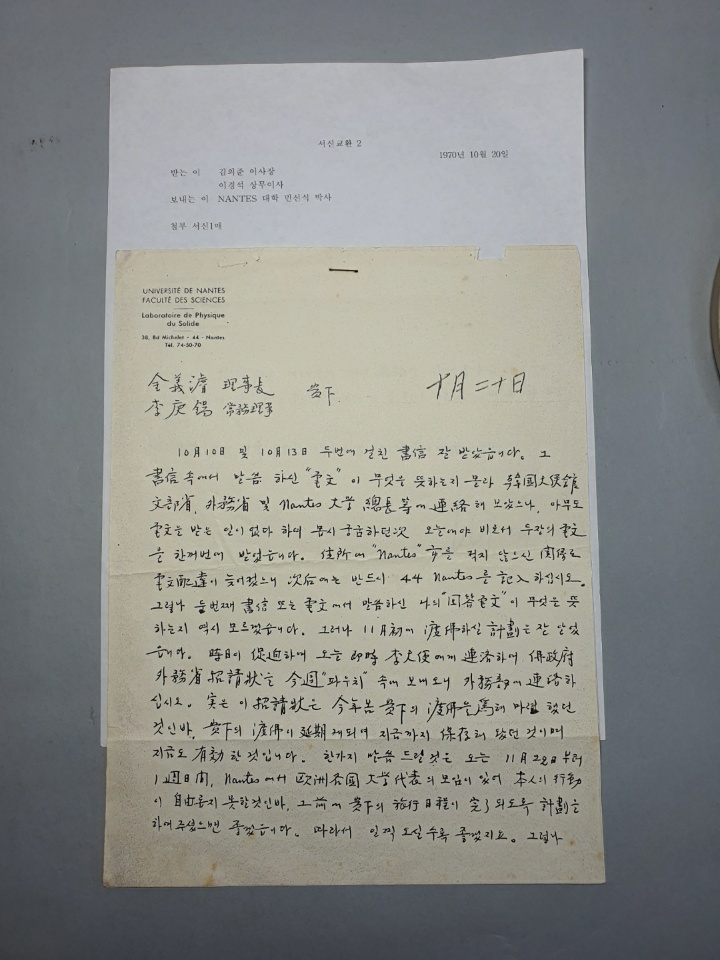 서신교환 2
1970년 10월 20일
받는 이 김의준 이사장
이경석 상무이사
보내는 이 NANTES 대학 민선식 박사
첨부 서신1매
UNIVERSITÉ DE NANTES
FACULTÉ DES SCIENCES
Laboratoire de Physique
du Solide
38, Bd Michelet - 44 - Nantes
Tél. 74-50-70
金義濬 理事長 貴下
十月二十日
李庚錫 常務理事
10月10日 및 10月13日 두번에 걸친 書信 잘 받았읍니다. 그
書信 속에서 말씀 하신 "電文"이 무엇을 뜻하는지 몰라 韓國大使館
文部省, 外務省 및 Nantes 大学 總長 等에 連絡해 보았으나, 아무도
電文을 받은 일이 없다 하여 몹시 궁금하던次 오늘에야 비로서 두장의 電文
을 한꺼번에 받았읍니다. 住所에 "Nantes" 市를 적지 않으신 関係로
電文配達이 늦어졌으니 次后에는 반드시 44 Nantes를 記入하십시오.
그렇나 둘번째 書信 또는 電文에서 말씀하신 나의 "回答電文"이 무엇을 뜻
하는지 역시 모르겠읍니다. 그러나 11月初에 渡佛하실 計劃은 잘 알았
읍니다. 時日이 促迫하여 오늘 即時 李大使에게 連絡하여 佛政府
外務省 招請狀을 今週 "파우치" 속에 보내오니 外務部에 連絡하
십시오. 実은 이 招請狀은 今年봄 貴下의 渡佛을 為해 마련했던
것인바, 貴下의 渡佛이 延期 되여 지금까지 保存해 놨던 것이며
지금도 有効한 것입니다. 한가지 말씀 드릴것은 오는 11月22日부터
1週日间, Nantes에서 欧洲各国 大学代表의 모임이 있어 本人의 行動
이 自由롭지 못할것인바, 그前에 貴下의 旅行日程이 完了되도록 計劃을
하여 주셨으면 좋겠읍니다. 따라서 일찍 오실수록 좋겠지요. 그렇나